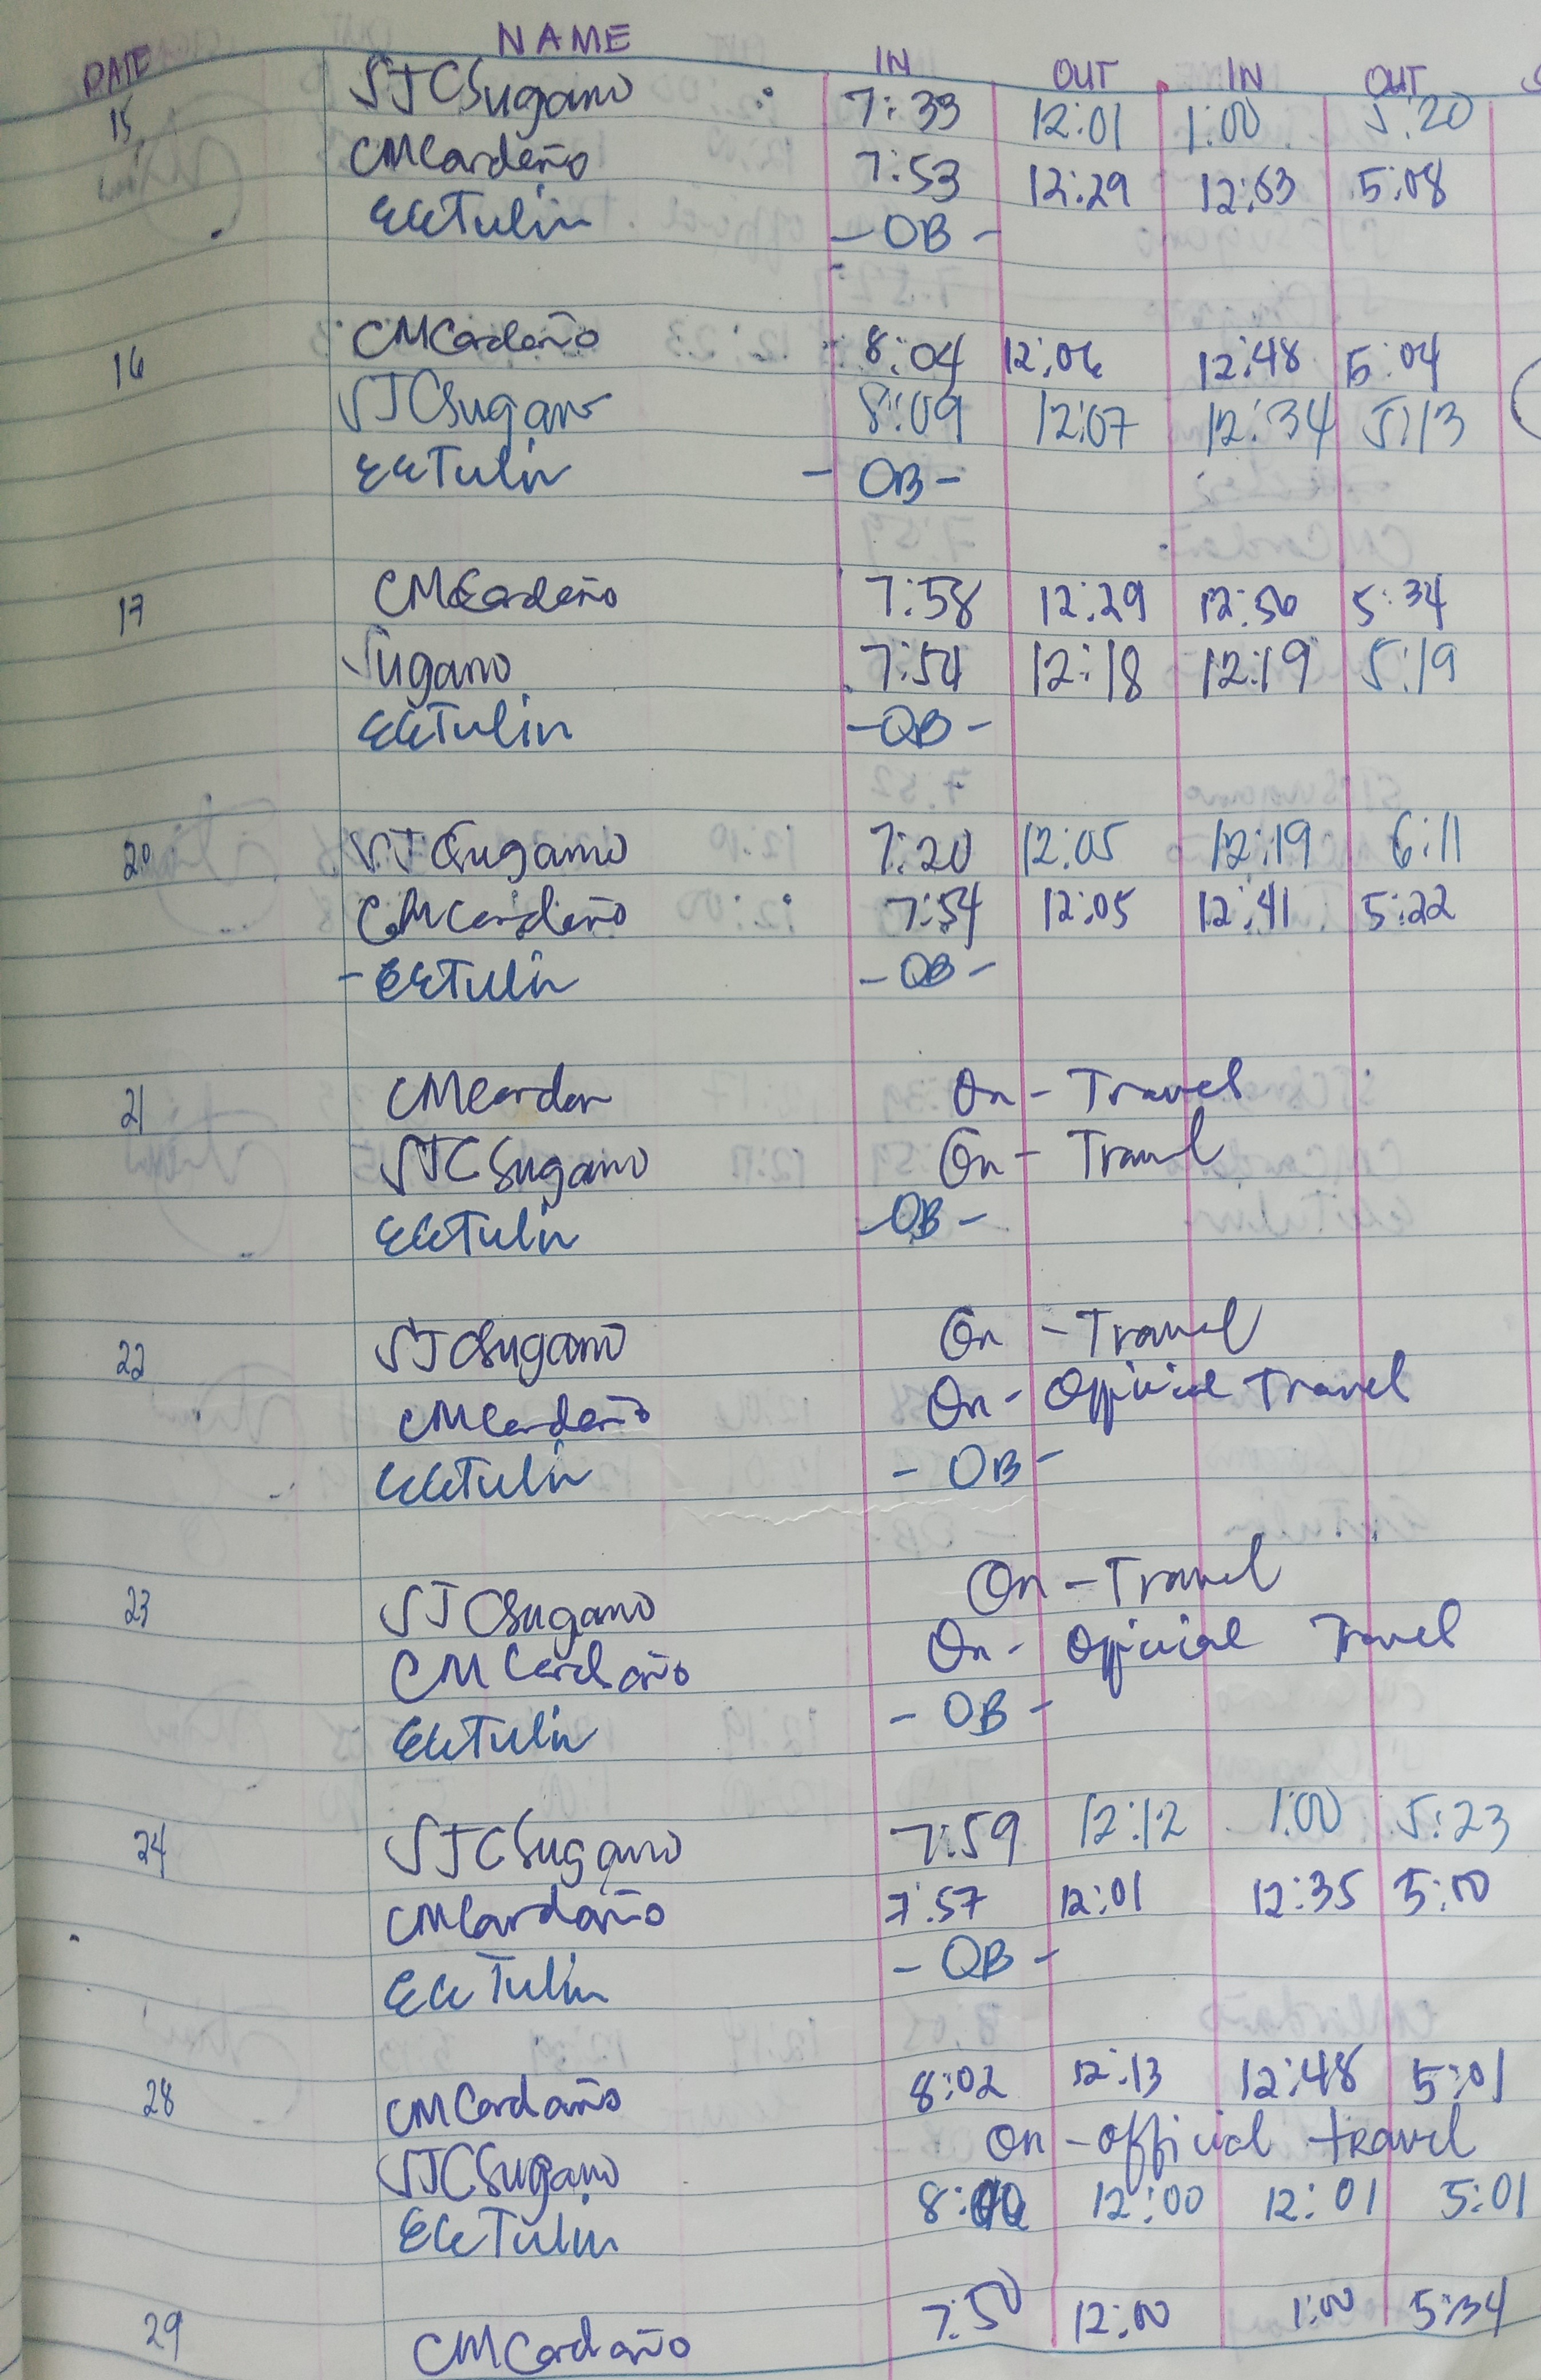 DATE NAME IN OUT IN OUT
15 SJCSugano 7:33 12:01 1:00 5:20
CMCardeño 7:53 12:29 12:53 5:08
EGTulin - OB -
16 CMCardeño 8:04 12:06 12:48 5:04
SJCSugano 8:09 12:07 12:34 5:13
EGTulin - OB -
17 CMCardeño 7:58 12:29 12:56 5:34
Sugano 7:54 12:18 12:19 5:19
EGTulin - OB -
20 SJCSugano 7:20 12:05 12:19 6:11
CMCardeño 7:54 12:05 12:41 5:22
- EGTulin - OB -
21 CMCardeño On - Travel
SJCSugano On - Travel
EGTulin - OB -
22 SJCSugano On - Travel
CMCardeño On - Official Travel
EGTulin - OB -
23 SJCSugano On - Travel
CMCardeño On - Official Travel
EGTulin - OB -
24 SJCSugano 7:59 12:12 1:00 5:23
CMCardeño 7:57 12:01 12:35 5:00
EGTulin - OB -
28 CMCardeño 8:02 12:13 12:48 5:01
SJCSugano On - official travel
EGTulin 12:00 12:01 5:01
29 CMCardeño 7:50 12:00 1:00 5:34